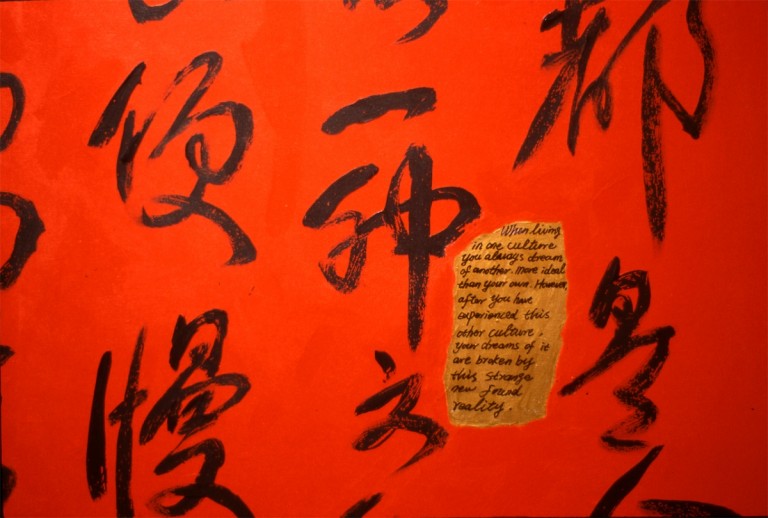 都是人
一种文
便慢
When living
in one culture
you always dream
of another. more ideal
than your own. However,
after you have
experienced this
other culture.
your dreams of it
are broken by
this strange
new found
reality.